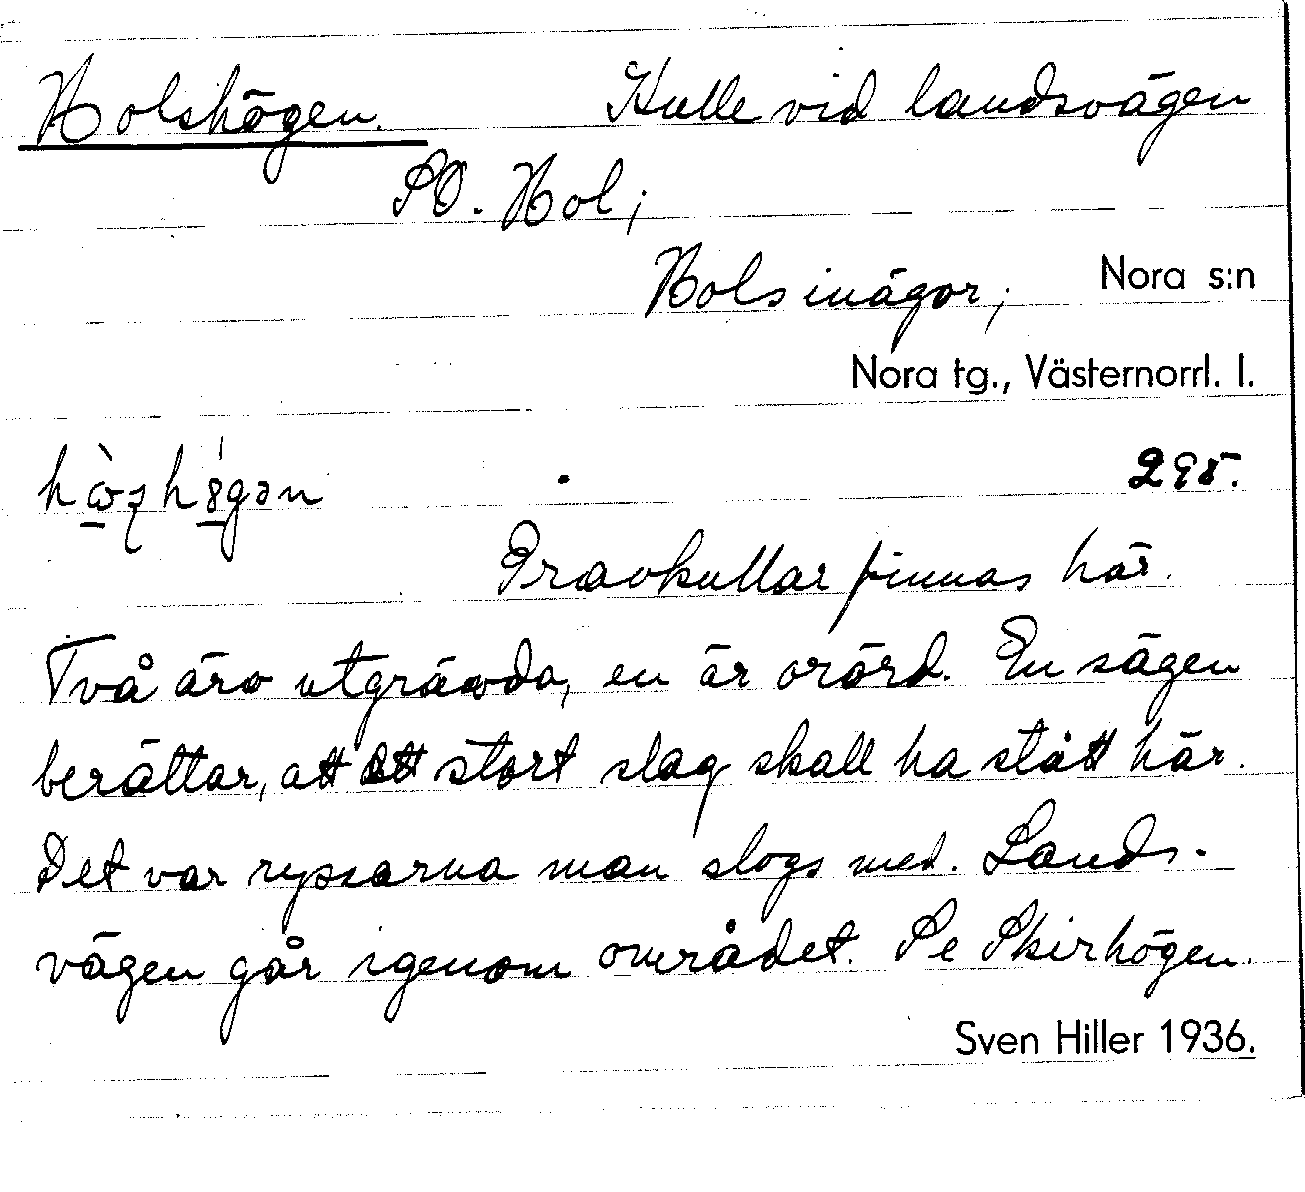 Holshögen. Kulle vid landsvägen
SO. Hol;
Hols inägor; Nora s:n
Nora tg., Västernorrl. l.
295.
Gravkullar finnas här.
Två äro utgrävda, en är orörd. En sägen
berättar, att ett stort slag skall ha stått här.
Det var ryssarna man slogs med. Lands-
vägen går igenom området. Se Skirhögen.
Sven Hiller 1936.